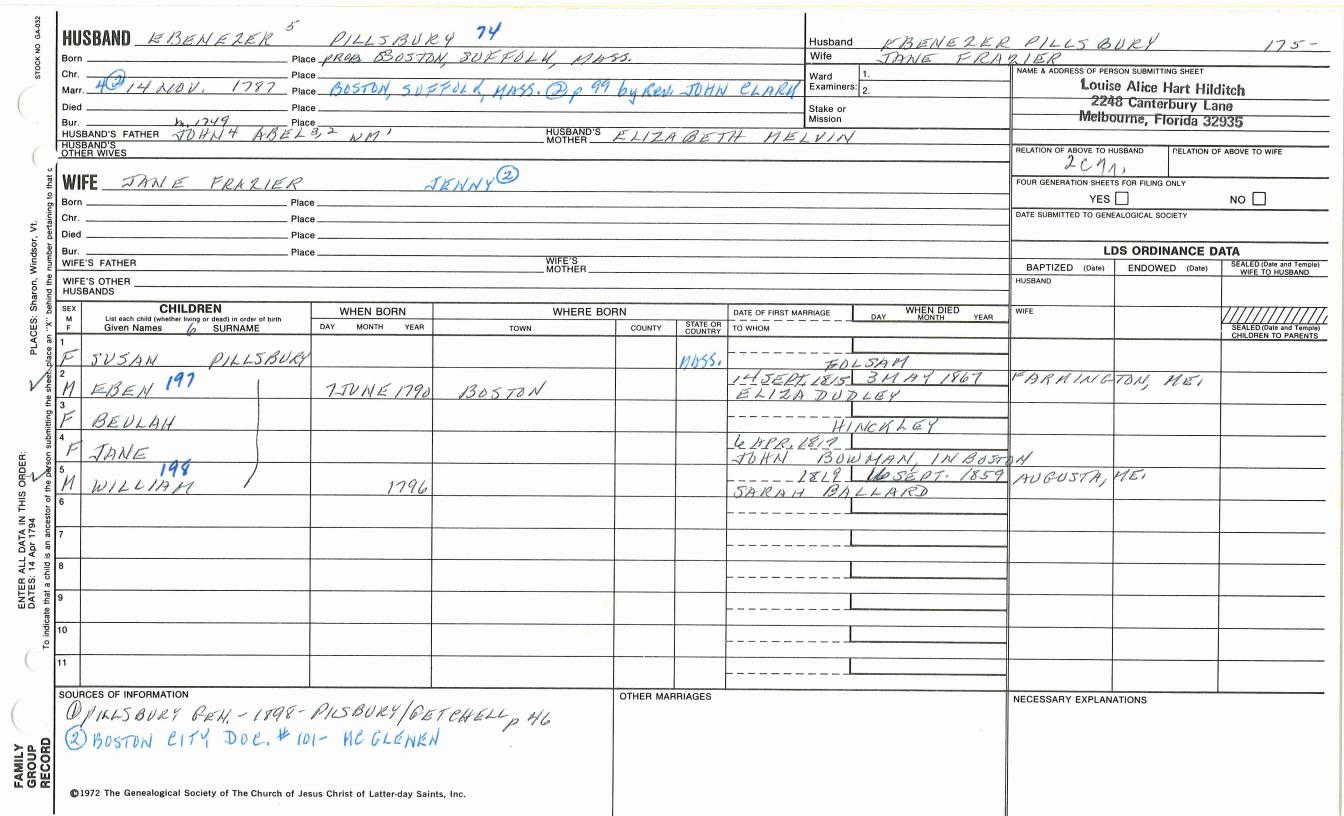 STOCK NO GA-032
HUSBAND EBENEZER 5 PILLSBURY 74
Born Place PROB. BOSTON, SUFFOLK, MASS.
Chr. Place
Marr. 4② 14 NOV. 1787 Place BOSTON, SUFFOLK, MASS. ② p 99 by Rev. JOHN CLARK
Died Place
Bur. Place
HUSBAND'S FATHER JOHN 4 ABEL 3,2 WM 1 HUSBAND'S MOTHER ELIZABETH MELVIN
HUSBAND'S OTHER WIVES
Husband EBENEZER PILLSBURY 175-
Wife JANE FRAZIER
Ward Examiners: 1.
2.
Stake or Mission
NAME & ADDRESS OF PERSON SUBMITTING SHEET
Louise Alice Hart Hilditch
2248 Canterbury Lane
Melbourne, Florida 32935
RELATION OF ABOVE TO HUSBAND RELATION OF ABOVE TO WIFE
FOUR GENERATION SHEETS FOR FILING ONLY
YES NO
DATE SUBMITTED TO GENEALOGICAL SOCIETY
WIFE JANE FRAZIER JENNY ②
Born Place
Chr. Place
Died Place
Bur. Place
WIFE'S FATHER WIFE'S MOTHER
WIFE'S OTHER HUSBANDS
LDS ORDINANCE DATA
BAPTIZED (Date) ENDOWED (Date) SEALED (Date and Temple) WIFE TO HUSBAND
HUSBAND
WIFE
SEALED (Date and Temple) CHILDREN TO PARENTS
SEX M F
CHILDREN
List each child (whether living or dead) in order of birth
Given Names 6 SURNAME
WHEN BORN
DAY MONTH YEAR
WHERE BORN
TOWN COUNTY STATE OR COUNTRY
DATE OF FIRST MARRIAGE
TO WHOM
WHEN DIED
DAY MONTH YEAR
1 F SUSAN PILLSBURY MASS. FOLSAM
2 M EBEN 197 7 JUNE 1790 BOSTON 14 SEPT. 1815 3 MAY 1867 FARMINGTON, ME.
ELIZA DUDLEY
3 F BEULAH HINCKLEY
4 F JANE 6 APR. 1817
JOHN BOWMAN, IN BOSTON
5 M WILLIAM 198 1796 1819 16 SEPT. 1859 AUGUSTA, ME.
SARAH BALLARD
6
7
8
9
10
11
SOURCES OF INFORMATION
① PILLSBURY GEN. - 1898 - PILSBURY/GETCHELL p 46
② BOSTON CITY DOC. # 101- MC GLENEN
OTHER MARRIAGES
NECESSARY EXPLANATIONS
©1972 The Genealogical Society of The Church of Jesus Christ of Latter-day Saints, Inc.
ENTER ALL DATA IN THIS ORDER:
DATES: 14 Apr 1794 PLACES: Sharon, Windsor, Vt.
To indicate that a child is an ancestor of the person submitting the sheet, place an "X" behind the number pertaining to that c
FAMILY GROUP RECORD